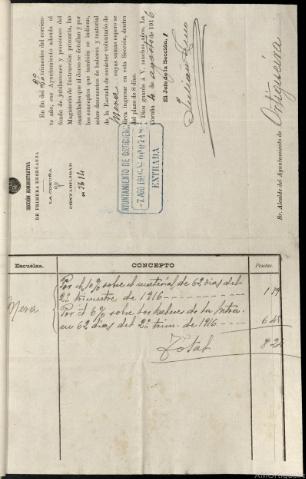 SECCIÓN ADMINISTRATIVA
DE PRIMERA ENSEÑANZA
LA CORUÑA
CONTABILIDAD
En fin del 2º trimestre del corrien-
te año, ese Ayuntamiento adeuda al
fondo de jubilaciones y pensiones del
Magisterio de Instrucción primaria, las
cantidades que al dorso se detallan y por
los conceptos que también se indican,
sobre descuentos de haberes y material
de la Escuela de carácter voluntario de
Mera, cuyas sumas espero se
sirva ingresar en esta Sección, dentro
del plazo de 8 días.
Dios guarde á V. muchos años. La
Coruña de agosto de 1916
El Jefe de la Sección,
Julián
AYUNTAMIENTO DE
ENTRADA
Sr. Alcalde del Ayuntamiento de Ortigueira
Escuelas. CONCEPTO Pesetas.
Mera Por el 10% sobre el material de 62 días del
2º trimestre de 1916
Por el 6% sobre los haberes de la Mtra.
en 62 días del 2º trim. de 1916
Total